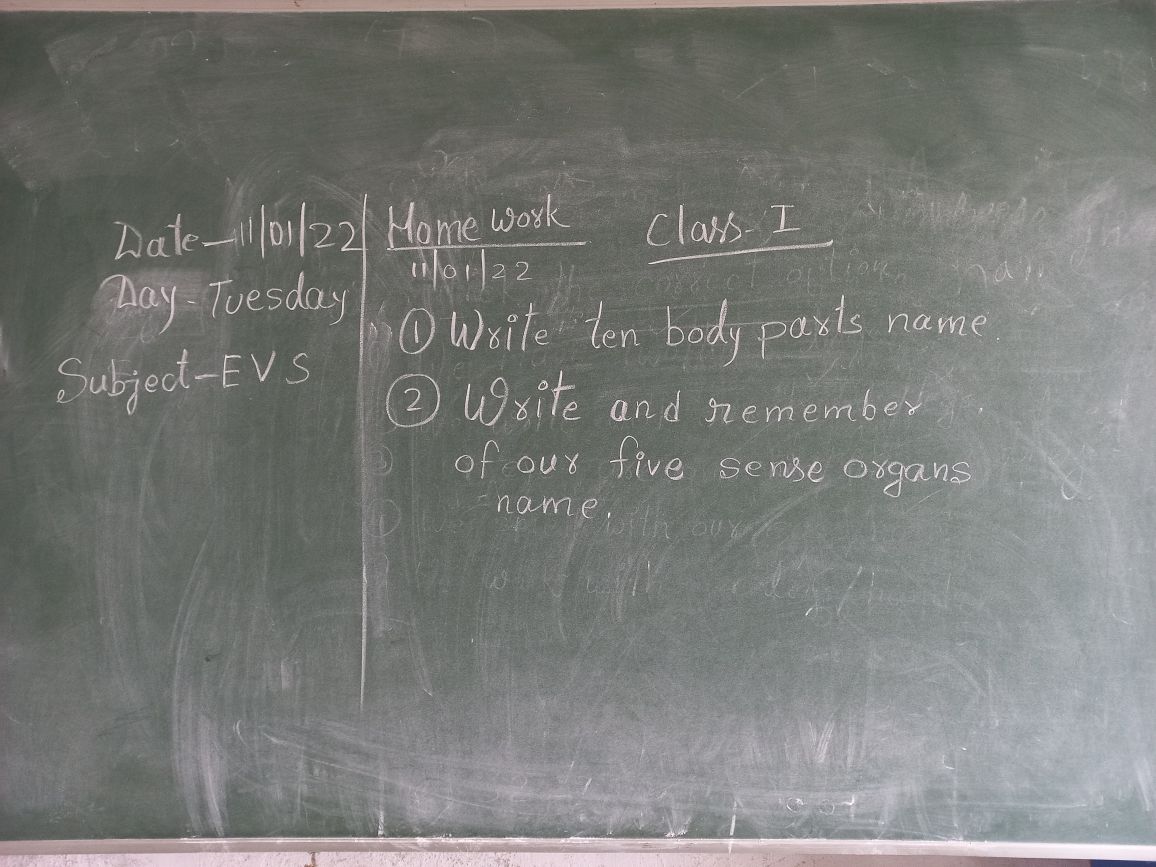 Date-11/01/22
Day-Tuesday
Subject-EVS
Home work
Class-I
11/01/22
① Write ten body parts name.
② Write and remember
of our five sense organs
name.